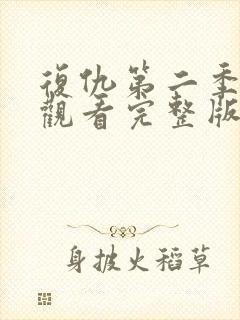 復仇第二季
觀看完整版
身披火稻草